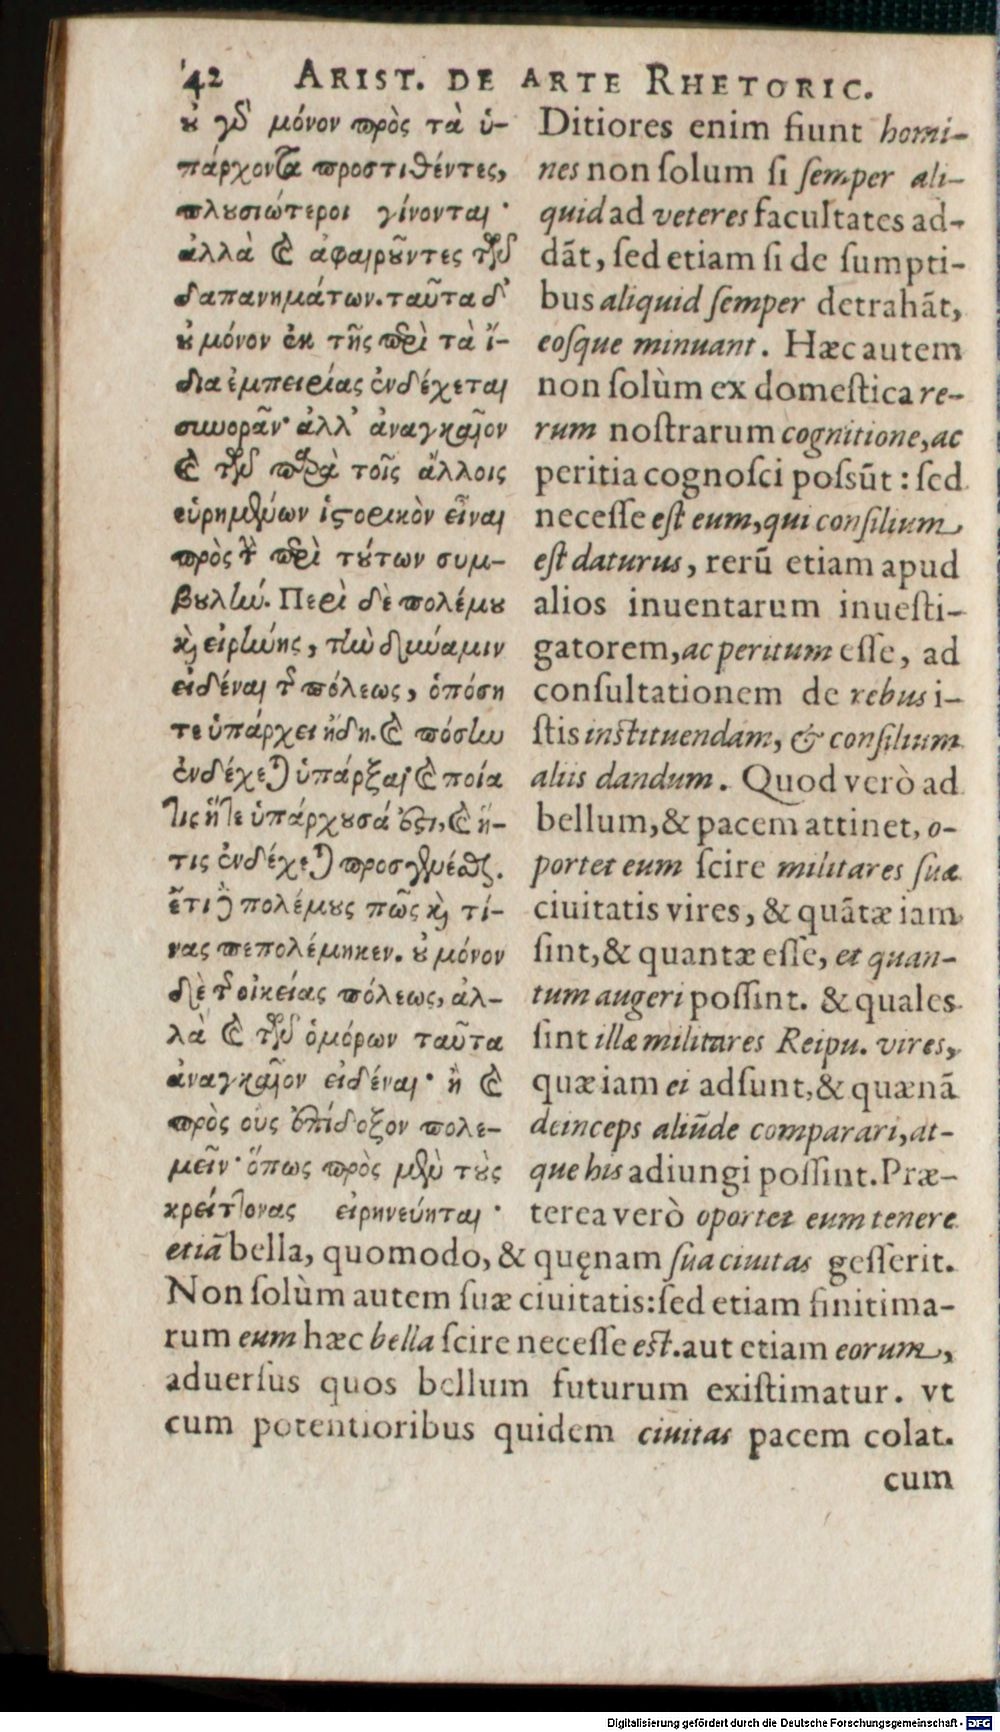 42 ARIST. DE ARTE RHETORIC.
ȣ γὰρ μόνον πρὸς τὰ ὑ-
πάρχοντα προστιθέντες,
πλȣσιώτεροι γίνονται·
ἀλλὰ καὶ ἀφαιρȣ͂ντες τῶν
δαπανημάτων. ταῦτα δ'
ȣ μόνον ἐκ τῆς περὶ τὰ ἴ-
δια ἐμπειρίας ἐνδέχεται
συνορᾶν· ἀλλ' ἀναγκαῖον
καὶ τῶν παρὰ τοῖς ἄλλοις
εὑρημένων ἱστορικὸν εἶναι
πρὸς τὴν περὶ τȣ́των συμ-
βȣλήν. Περὶ δὲ πολέμȣ
καὶ εἰρήνης, τὴν δύναμιν
εἰδέναι τῆς πόλεως, ὁπόση
τε ὑπάρχει ἤδη. καὶ πόσην
ἐνδέχεται ὑπάρξαι καὶ ποία
τις ἥτε ὑπάρχȣσά ἐστι, καὶ ἥ-
τις ἐνδέχεται προσγενέσθαι.
ἔτι δὲ πολέμȣς πῶς καὶ τί-
νας πεπολέμηκεν. ȣ μόνον
δὲ τῆς οἰκείας πόλεως, ἀλ-
λὰ καὶ τῶν ὁμόρων ταῦτα
ἀναγκαῖον εἰδέναι· ἢ καὶ
πρὸς οὓς ἐπίδοξον πολε-
μεῖν· ὅπως πρὸς μὲν τȣ̀ς
κρείττονας εἰρηνεύηται·
Ditiores enim fiunt homi-
nes non ſolum ſi ſemper ali-
quid ad veteres facultates ad-
dãt, ſed etiam ſi de ſumpti-
bus aliquid ſemper detrahãt,
eoſque minuant. Hæc autem
non ſolùm ex domeſtica re-
rum noſtrarum cognitione, ac
peritia cognoſci poſsũt : ſed
neceſſe eſt eum, qui conſilium
eſt daturus, rerũ etiam apud
alios inuentarum inueſti-
gatorem, ac peritum eſſe, ad
conſultationem de rebus i-
ſtis inſtituendam, & conſilium
aliis dandum. Quod verò ad
bellum, & pacem attinet, o-
portet eum ſcire militares ſuæ
ciuitatis vires, & quãtæ iam
ſint, & quantæ eſſe, et quan-
tum augeri poſſint. & quales
ſint illæ militares Reipu. vires,
quæ iam ei adſunt, & quænã
deinceps aliũde comparari, at-
que his adiungi poſſint. Præ-
terea verò oportet eum tenere
etiã bella, quomodo, & quęnam ſua ciuitas geſſerit.
Non ſolùm autem ſuæ ciuitatis: ſed etiam finitima-
rum eum hæc bella ſcire neceſſe eſt. aut etiam eorum,
aduerſus quos bellum futurum exiſtimatur. vt
cum potentioribus quidem ciuitas pacem colat.
cum
Digitalisierung gefördert durch die Deutsche Forschungsgemeinschaft - DFG